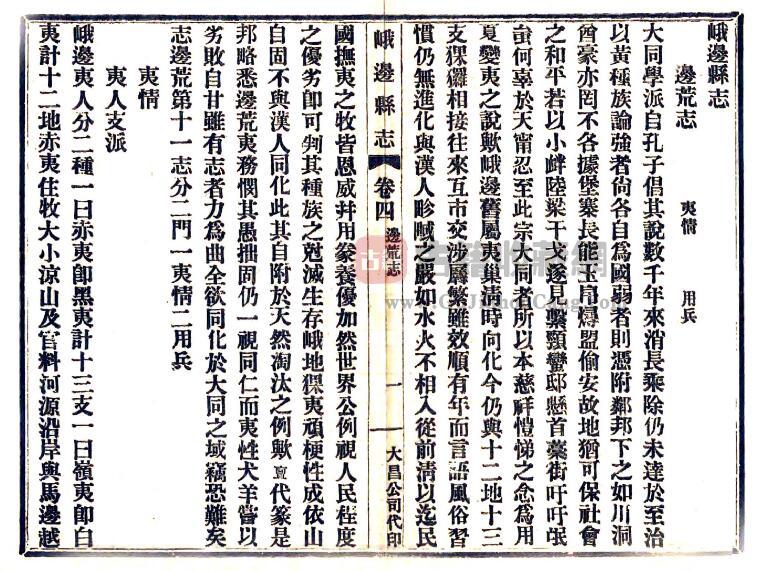 峨邊縣志
邊荒志 夷情 用兵
大同學派自孔子倡其說數千年來消長乘除仍未達於至治
以黃種族論強者尙各自爲國弱者則憑附鄰邦下之如川洞
酋豪亦罔不各據堡寨長能玉帛爆盟偷安故地猶可保社會
之和平若以小衅陸梁干戈遂見繫頸蠻邸懸首藁街吁吁氓
蚩何辜於天甯忍至此宗大同者所以本慈祥愷悌之念爲用
夏變夷之說歟峨邊舊屬夷巢清時向化今仍與十二地十三
支猓玀相接往來互市交涉屬繁雖效順有年而言語風俗習
慣仍無進化與漢人畛域之嚴如水火不相入從前清以迄民
峨邊縣志 卷四 邊荒志 一 大昌公司代印
國撫夷之牧皆恩威幷用豢養優加然世界公例視人民程度
之優劣卽可判其種族之剋滅生存峨地猓夷頑梗性成依山
自固不與漢人同化此其自附於天然淘汰之例歟 代篆是
邦略悉邊荒夷務憫其愚拙固仍一視同仁而夷性犬羊嘗以
劣敗自甘雖有志者力爲曲全欲同化於大同之域竊恐難矣
志邊荒第十一志分二門一夷情二用兵
夷情
夷人支派
峨邊夷人分二種一曰赤夷卽黑夷計十三支一曰嶺夷卽白
夷計十二地赤夷住牧大小涼山及官料河源沿岸與馬邊越
古籍收藏網
www.GuJiShouCang.com